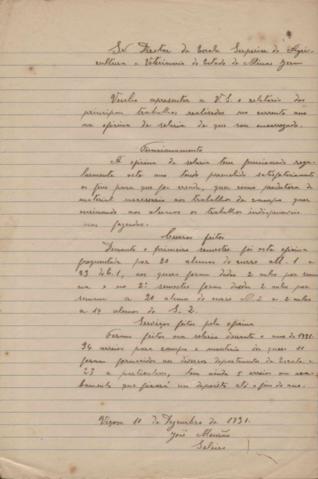 Sr. Director da Escola Superior de Agri-
cultura e Veterinaria do Estado de Minas Geraes
Venho apresentar a V. S. o relatorio dos
principaes trabalhos realisados no corrente an-
no na oficina de selaria de que sou encarregado.
Funcionamento
A oficina de selaria tem funcionado regu-
larmente este ano tendo prenchido satisfatoriamente
os fins para que foi creada, quer como
material necessario aos trabalhos de campo quer
ensinando aos alunos os trabalhos indispensaveis
nas fazendas.
Cursos feitos
Durante o primeiro semestre foi esta oficina
frequentada por 20 alunos do curso All. 1 e
23 de 1, aos quaes foram dadas 2 aulas por sema-
na e no 2º semestre foram dadas 2 aulas por
semana a 20 alunos do curso 2 e 2 aulas
a 19 alunos do S. 2.
Serviços feitos pela oficina
Foram feitos na selaria durante o ano de 1931.
34 arreios para campo e montaria dos quaes 11
foram fornecidos aos diversos departamentos da Escola e
23 a particulares, tem ainda 5 arreios em aca-
bamento que ficará em deposito até o fim do ano.
Viçosa 10 de Dezembro de 1931.
José
Seleiro